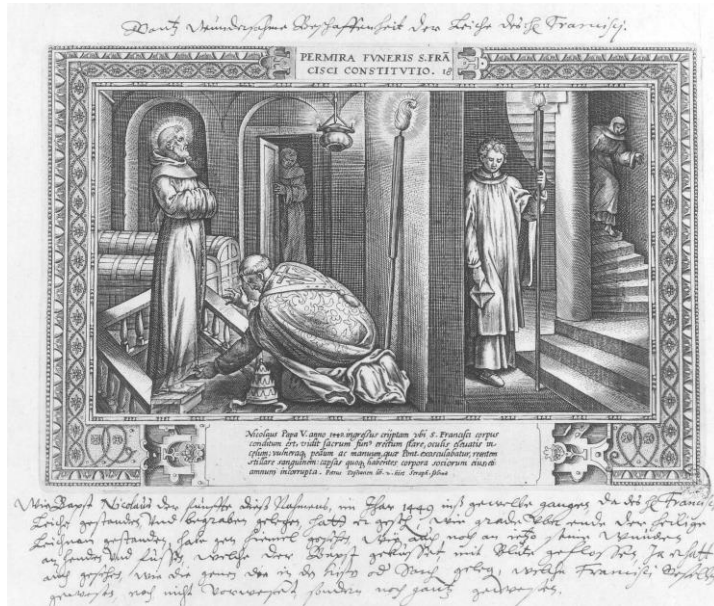 Gantz Wundersahme Beschaffenheit der Leiche des H: Francisci.
PERMIRA FVNERIS S. FRÃ
CISCI CONSTITVTIO. 16
Nicolaus Papa V. anno 1449 ingressus criptam vbi S. Francisci corpus
conditum est, vidit sacrum funꝰ erectum stare, oculis eleuatis in
cęlum; vulneraq. pedum ac manuum, quę Pont. exosculabatur, recentem
stillare sanguinem: capsas quoq. habentes corpora sociorum eius, et
omnium interrupta.
Wie Bapst Nicolaus der fünffte dieß Nahmens, im Jhar 1449 inß gewelbe gangen da des H: Francisci
Leiche gestanden und begraben gelegen, hatt er wie grade der heilige
Leichnam gestanden, hatt gen himel gesehen, wie auch noch an seine Wunden
an henden und füssen, welche der Bapst geküsset mit Blut geflossen Ja er hatt
auch gesehen, wie die in der gelegen, welche Francisci
gewesen, noch nicht verwesen sondern noch gantz gewesen.